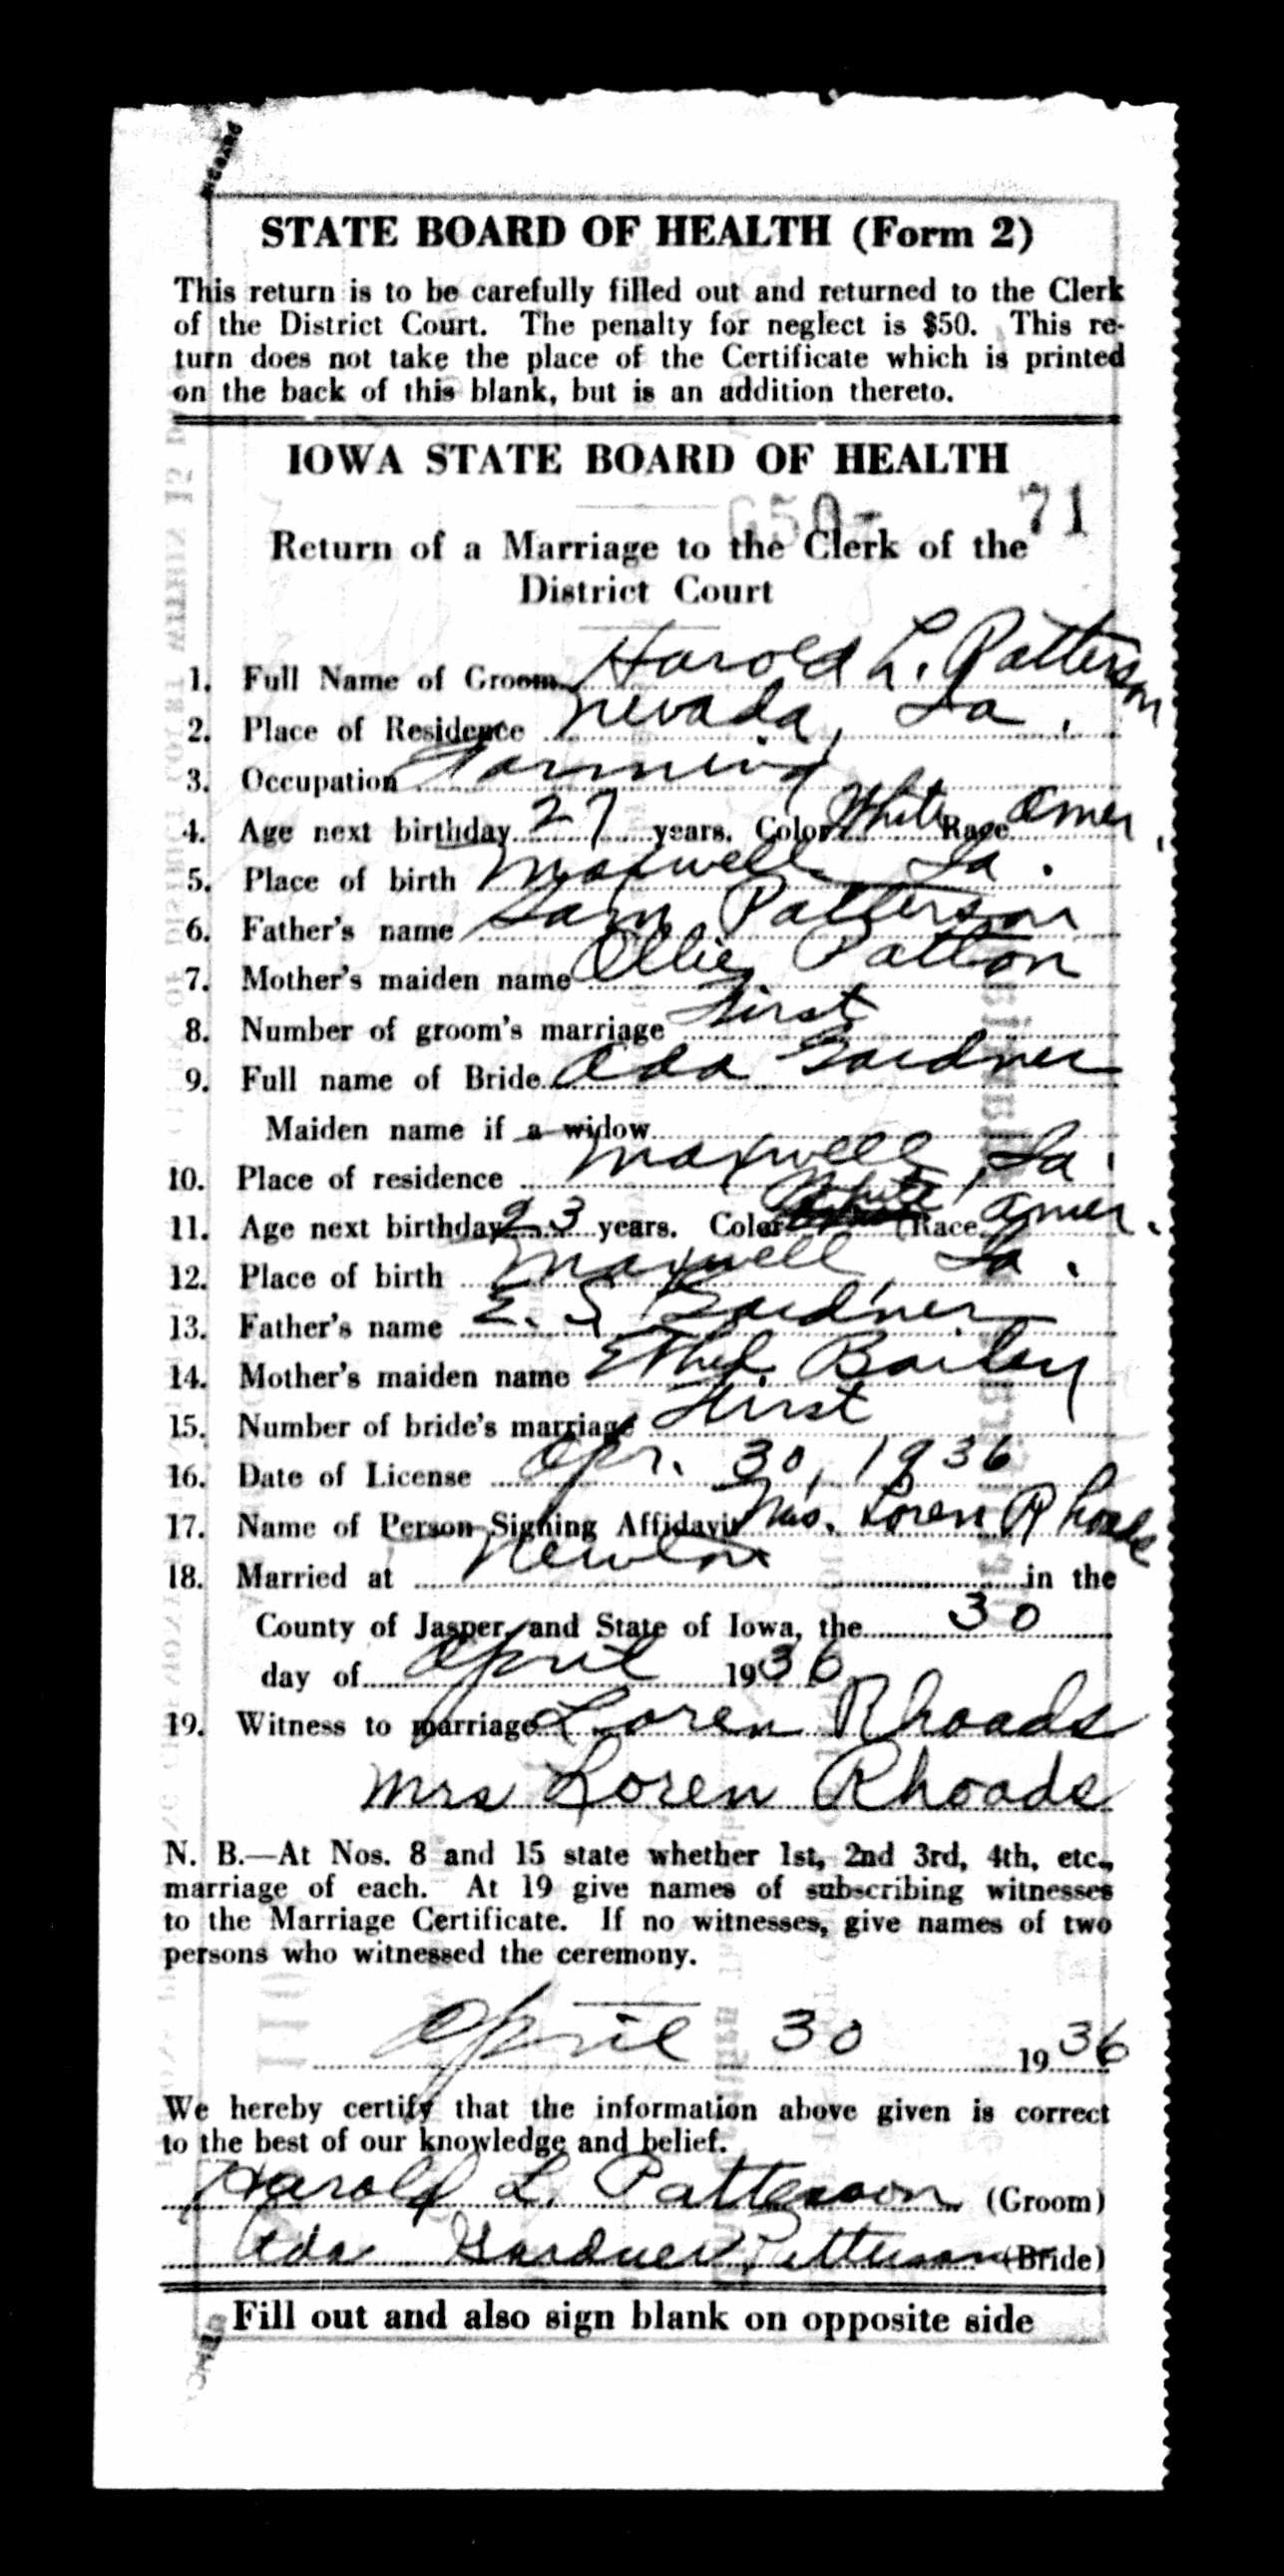 STATE BOARD OF HEALTH (Form 2)
This return is to be carefully filled out and returned to the Clerk
of the District Court. The penalty for neglect is $50. This re-
turn does not take the place of the Certificate which is printed
on the back of this blank, but is an addition thereto.
IOWA STATE BOARD OF HEALTH
71
Return of a Marriage to the Clerk of the
District Court
1. Full Name of Groom Harold L. Patterson
2. Place of Residence Nevada, Ia.
3. Occupation Farming
4. Age next birthday 27 years. Color White Race Amer.
5. Place of birth Maxwell Ia.
6. Father's name Sam Patterson
7. Mother's maiden name Ollie Patton
8. Number of groom's marriage First
9. Full name of Bride Ada Gardner
Maiden name if a widow
10. Place of residence Maxwell, Ia.
11. Age next birthday 23 years. Color White Race Amer.
12. Place of birth Maxwell Ia.
13. Father's name E. S. Gardner
14. Mother's maiden name Ethel Bailey
15. Number of bride's marriage First
16. Date of License Apr. 30, 1936
17. Name of Person Signing Affidavit Mrs. Loren Rhoads
18. Married at Newton in the
County of Jasper, and State of Iowa, the 30
day of April 1936
19. Witness to marriage Loren Rhoads
Mrs Loren Rhoads
N. B.—At Nos. 8 and 15 state whether 1st, 2nd 3rd, 4th, etc.,
marriage of each. At 19 give names of subscribing witnesses
to the Marriage Certificate. If no witnesses, give names of two
persons who witnessed the ceremony.
April 30 1936
We hereby certify that the information above given is correct
to the best of our knowledge and belief.
Harold L. Patterson (Groom)
Ada Gardner Patterson (Bride)
Fill out and also sign blank on opposite side